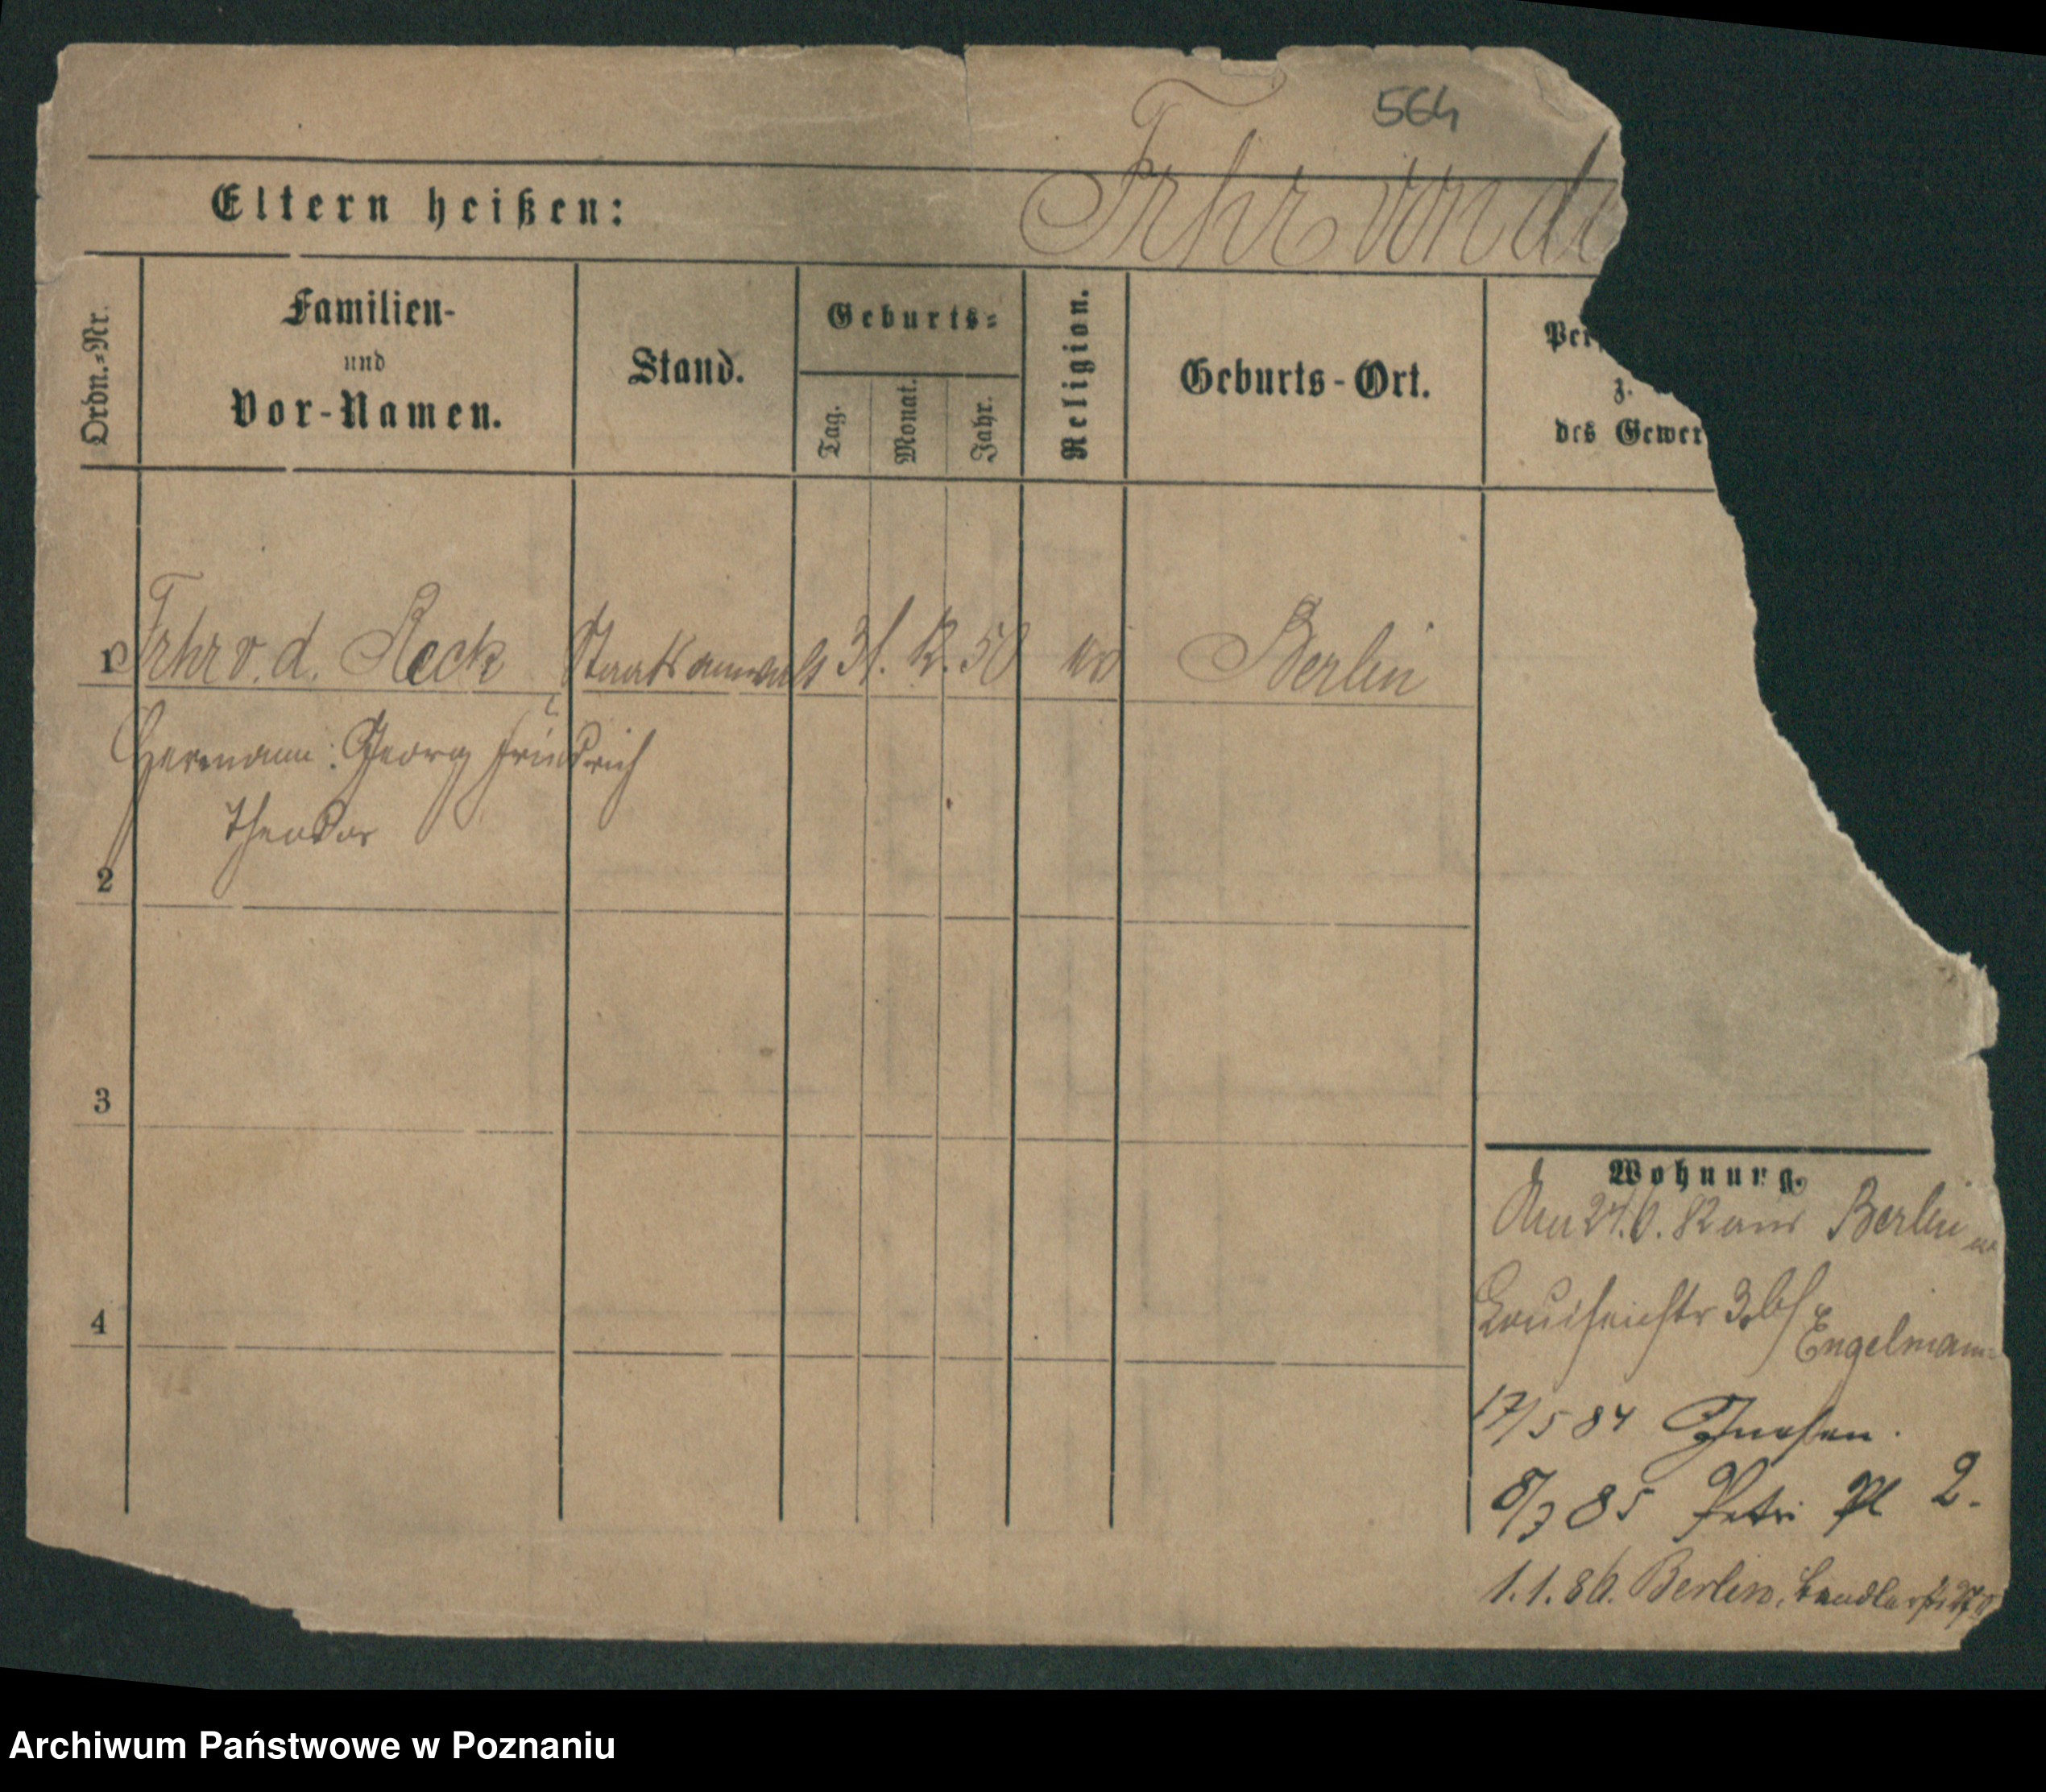 564
Eltern heißen: Frhr von de
Ordn.-Nr.
Familien-
und
Vor-Namen.
Stand.
Geburts-
Tag.
Monat.
Jahr.
Religion.
Geburts-Ort.
Per
z.
des Gewer
1 Frhr v. d. Reck Staatsanwalt 31. 12. 50 Berlin
Hermann Georg Friedrich
Theodor
2
3
4
Wohnung.
27.6.82 aus Berlin
Louisenstr 3 bei
Engelmann
17/5 84 Gnesen.
8/3 85 Petri Pl 2.
1.1.86. Berlin,
Archiwum Państwowe w Poznaniu